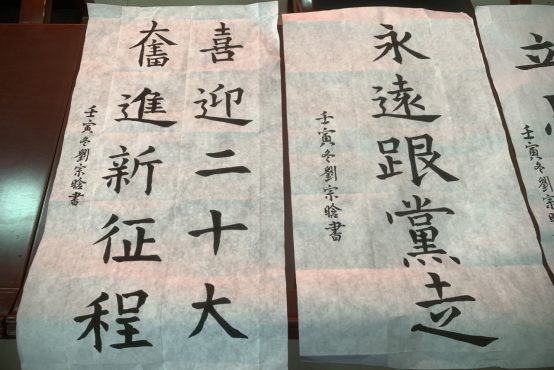 喜迎二十大
奮進新征程
壬寅冬劉宗晗書
永遠跟黨走
壬寅冬劉宗晗書
立
壬寅冬劉宗